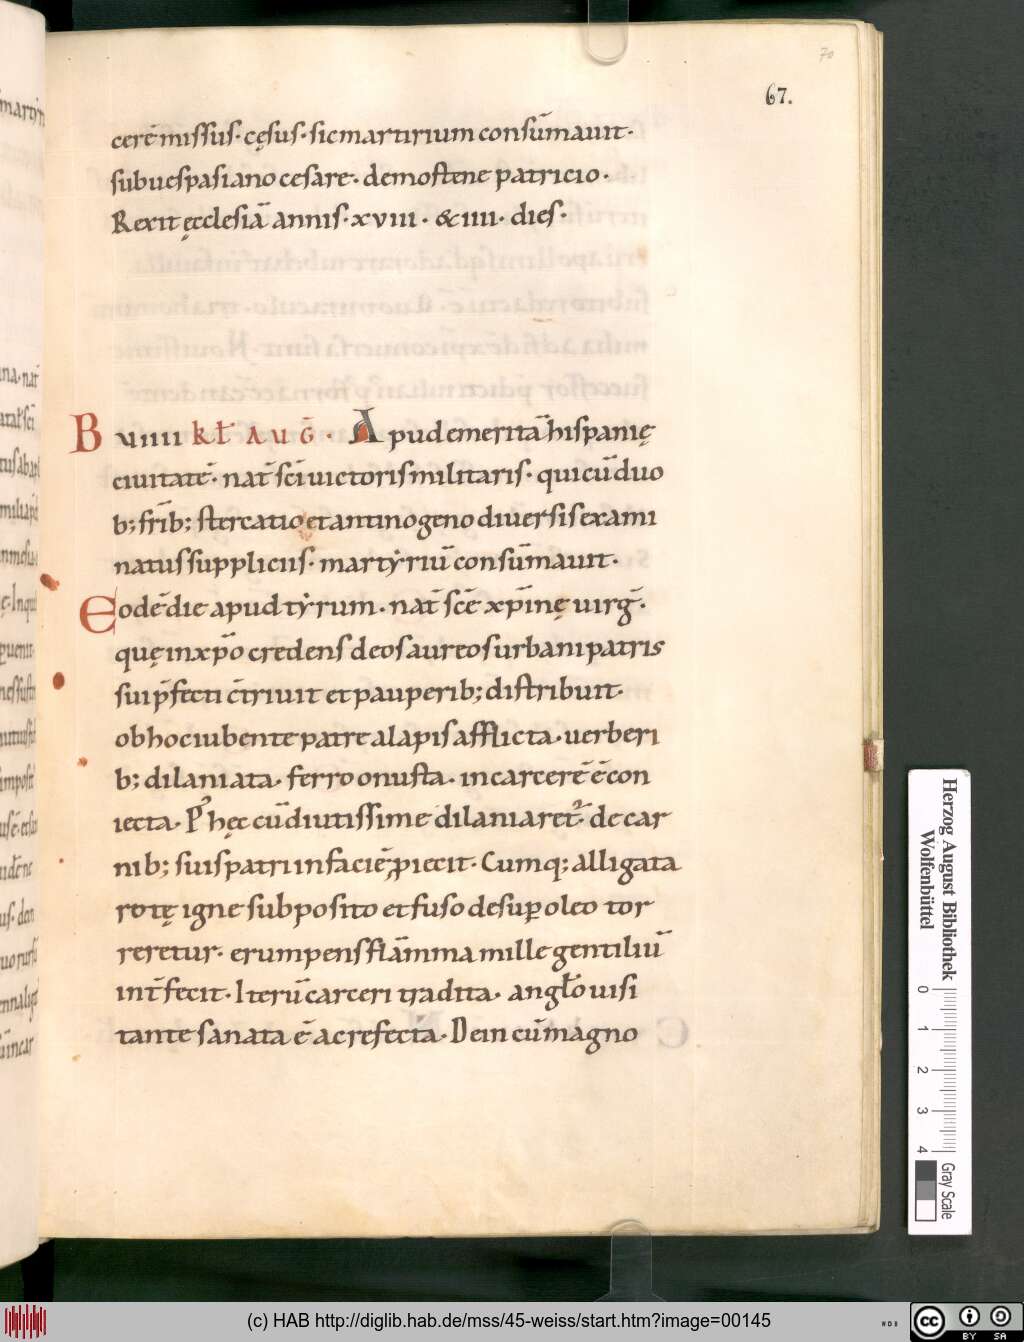 70
67.
cerē missus· cęsus· sic martirium consūmauit·
sub uespasiano cesare· demostene patricio·
Rexit ęcclesiā annis· xviii· & iiii· dies·
B viiii kł auḡ· Apud emeritā hispanię
ciuitatē· nat̄ sc̄i uictoris militaris· qui cū duo
b; frīb; stercatio et antinogeno diuersis exami
natus suppliciis· martẏriū consūmauit·
Eodē die apud tẏrum· nat̄ sc̄e xp̄inę uirḡ·
quę in xp̄o credens deos aureos urbani patris
sui p̄fecti c̄triuit et pauperib; distribuit·
ob hoc iubente patre alapis afflicta· uerberi
b; dilaniata· ferro onusta· in carcerē ē con
iecta· P᾽ hęc cū diutissime dilaniaret̄· de car
nib; suis patri in faciē ꝓiecit· Cumq; alligata
rotę igne subposito et fuso desuꝑ oleo tor
reretur· erumpens flāmma mille gentiliū
int̄fecit· Iterū carceri tradita· angło uisi
tante sanata ē ac refecta· Dein cū magno
Herzog August Bibliothek
Wolfenbüttel
0 1 2 3 4
Gray Scale
(c) HAB http://diglib.hab.de/mss/45-weiss/start.htm?image=00145
WDB
cc BY SA